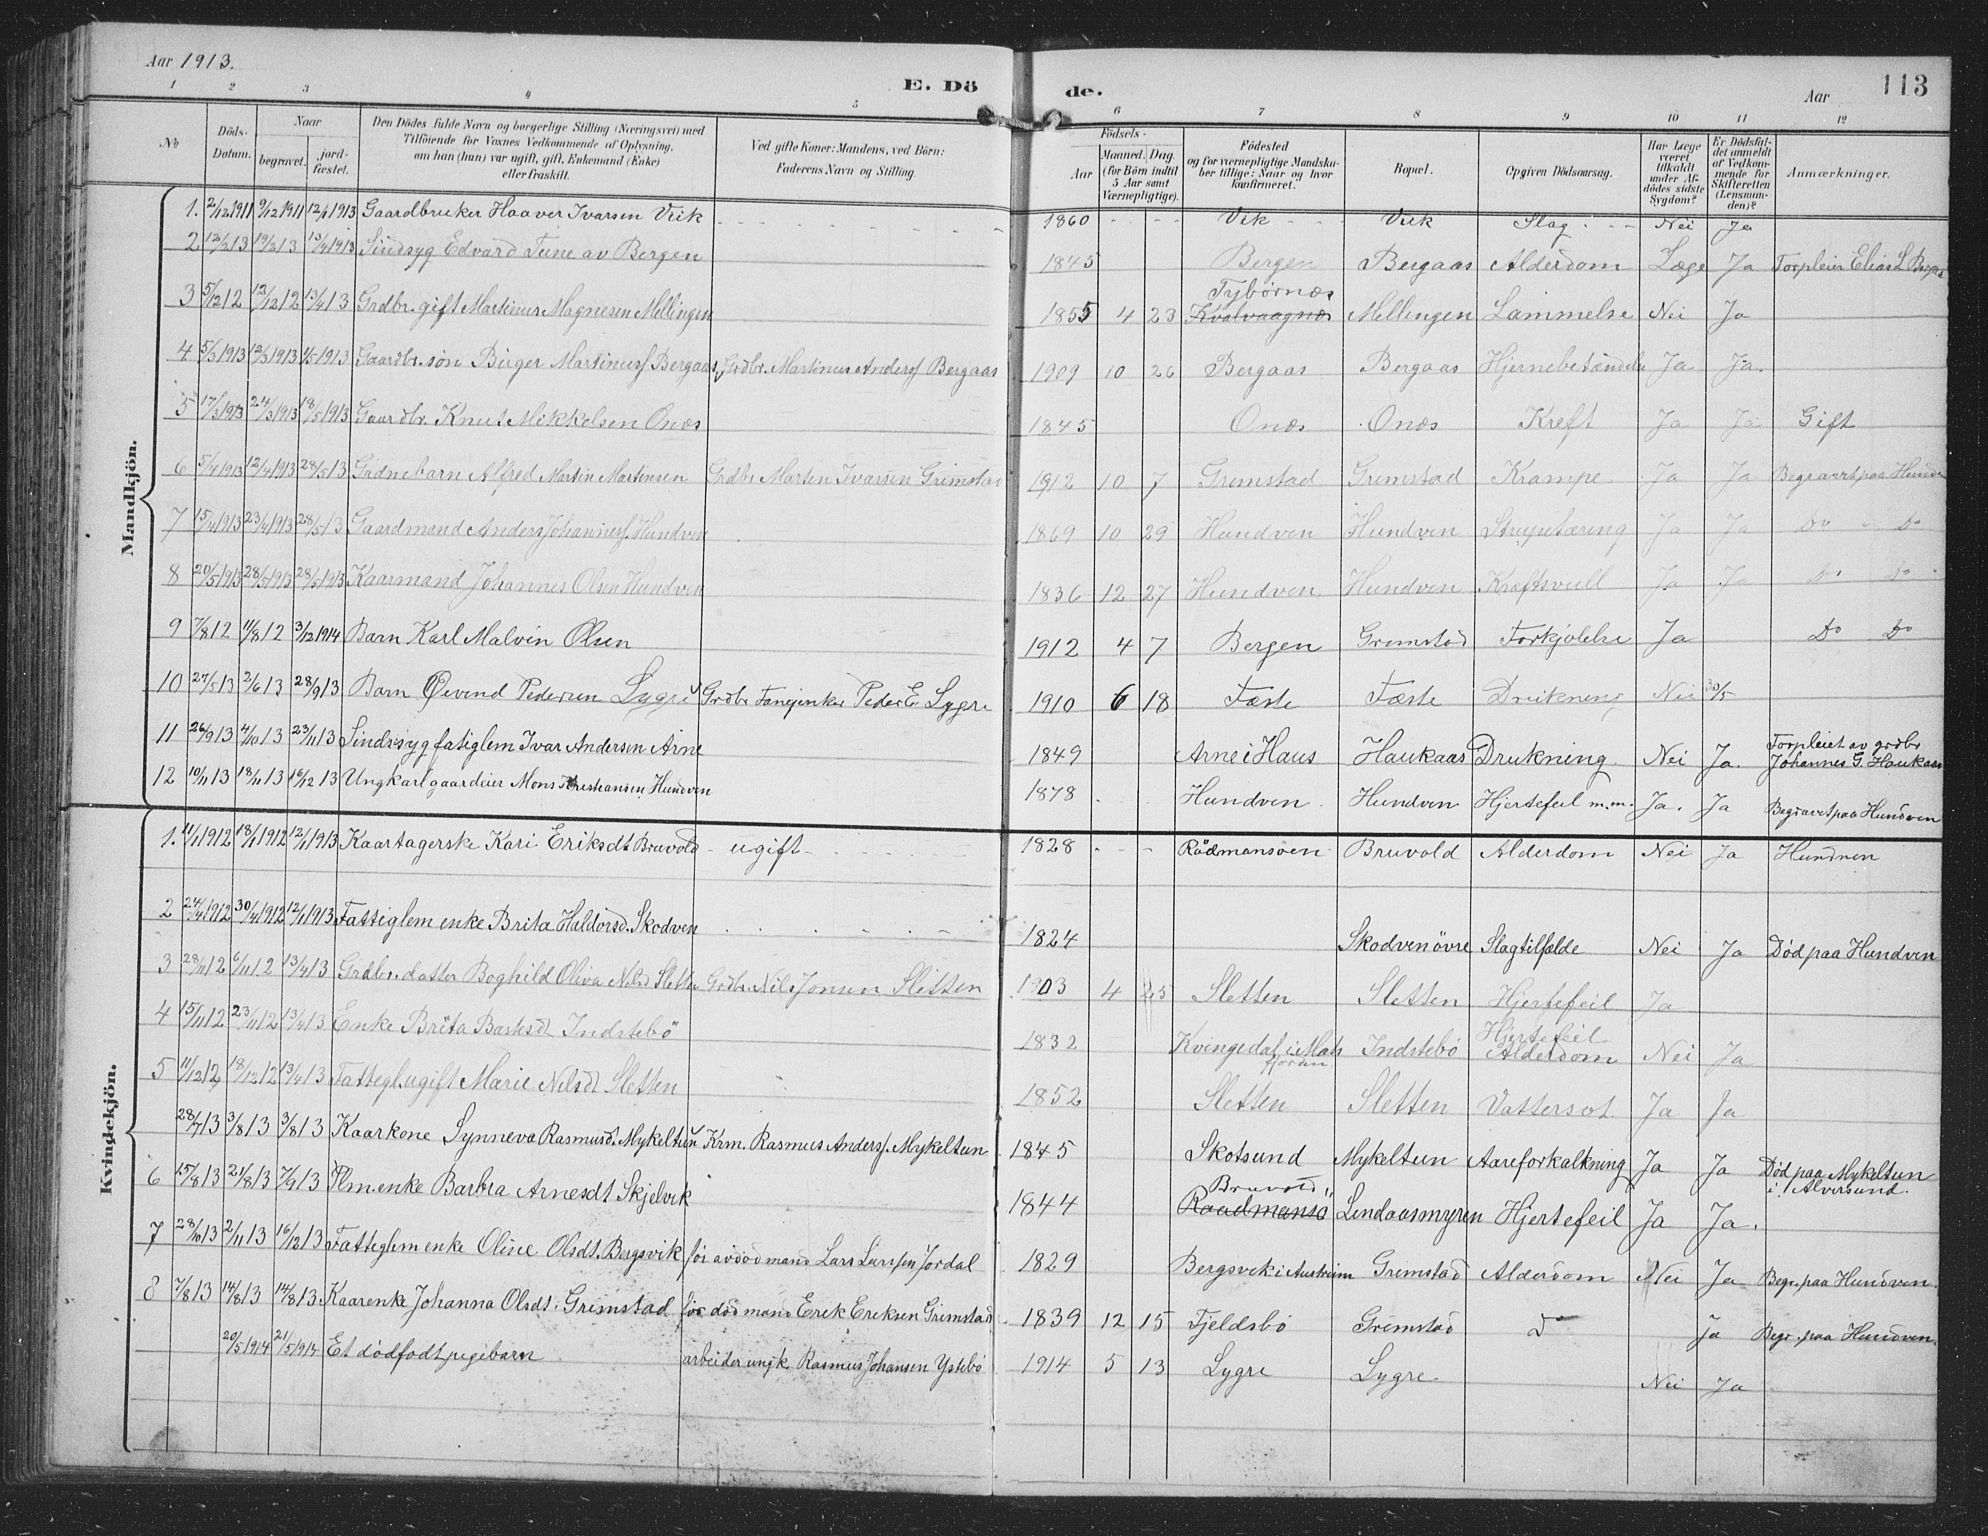 Aar 1913.
E. Döde.
Aar
113
1 2 3 4 5 6 7 8 9 10 11 12
No
Döds-Datum.
Naar
begravet.
jord-fæstet.
Den Dödes fulde Navn og borgerlige Stilling (Næringsvei) med Tilföiende for Voxnes Vedkommende af Oplysning, om han (hun) var ugift, gift, Enkemand (Enke) eller fraskilt.
Ved gifte Koner: Mandens, ved Börn: Faderens Navn og Stilling.
Födsels-
Aar
Maaned. Dag.
(for Börn indtil 5 Aar samt Værnepligtige).
Födested og for værnepligtige Mandskaber tillige: Naar og hvor konfirmeret.
Bopæl.
Opgiven Dödsaarsag.
Har Læge været tilkaldt under Afdödes sidste Sygdom?
Er Dödsfaldet anmeldt af Vedkommende for Skifteretten (Lensmanden)?
Anmærkninger.
Mandkjön.
1. 2/12 1911 9/12 1911 12/1 1913 Gaardbruker Haaver Ivarsen Vik 1860 Vik Vik Slag Nei Ja
2 12/2 13 19/2 13 13/4 1913 Sindsyg Edvard Tune av Bergen 1845 Bergen Bergaas Alderdom Læge Ja Forpleier Elias L
3 5/12 12 12/12 12 13/4 13 Grdbr. gift Martinus Magnesen Mellingen 1855 4 23 Tybørnæs Kvalvaagnes Mellingen Lammelse Nei Ja
4 5/3 1913 12/3 1913 1/5 1913 Gaardbr. søn Birger Martinusf Bergaas Grdbr. Martinus Andersf Bergaas 1909 10 26 Bergaas Bergaas Hjernebetændelse Ja Ja.
5 17/3 1913 24/3 1913 18/5 1913 Gaardbr. Knut Mikkelsen Onæs 1845 Onæs Onæs Kreft Ja Ja Gift
6 5/4 1913 12/4 1913 28/5 13 Alfred Martin Martinsen Grdbr Martin Ivarsen Grimstad 1912 10 7 Grimstad Grimstad Krampe Ja Ja Begravet paa Hundven
7 15/4 1913 23/4 1913 28/5 13 Gaardmand Anders Johannesf. Hundven 1869 10 29 Hundven Hundven Strupetæring Ja Ja Do Do
8 20/5 1913 28/5 1913 28/5 1913 Kaarmand Johannes Olsen Hundven 1836 12 27 Hundven Hundven Kræftsvull Ja Ja Do Do
9 7/8 12 11/8 12 3/12 1914 Barn Karl Malvin Olsen 1912 4 7 Bergen Grimstad Forkjølelse Ja Do Do
10 27/5 13 2/6 13 28/9 13 Barn Øivind Pedersen Lygre Grdbr Peder E. Lygre 1910 6 18 Fæste Fæste Drukning Nei 30/5
11 26/9 13 4/10 13 23/11 13 Sindssyg fatiglem Ivar Andersen Arne 1849 Arne i Haus Haukaas Drukning Nei Ja. Forpleiet av grdbr Johannes G. Haukaas
12 10/11 13 18/11 13 16/12 13 Ungkarl gaardeier Mons Kristiansen Hundven 1878 Hundven Hundven Hjertefeil m.m. Ja. Ja Begravet paa Hundven
Kvindekjön.
1. 11/1 1912 18/1 1912 12/1 1913 Kaartagerske Kari Eriksdt Bruvold ugift 1828 Rådmansøen Bruvold Alderdom Nei Ja Hundven
2 24/4 1912 30/4 1912 12/1 1913 Fattiglem enke Brita Haldorsd. Skodven 1824 Skodven övre Slagtilfælde Nei Ja Død paa Hundven
3 28/11 12 6/11 12 13/4 13 Grdbr. datter Boghild Oliva Nilsd Sletten Grdbr. Nils Jonsen Sletten 1903 4 25 Sletten Sletten Hjertefeil Ja
4 15/11 12 23/11 12 13/4 13 Enke Brita Indstebö 1832 Kvingedal i Masfjorden Indstebö Hjertefeil Alderdom Nei Ja
5 11/12 12 18/12 12 13/4 13 Fattegl. ugift Marie Nilsdt Sletten 1852 Sletten Sletten Vattersot Ja Ja
28/7 13 3/8 13 3/8 13 Kaarkone Synneva Rasmusd. Mykeltun Krm. Rasmus Andersf. Mykeltun 1845 Skotsund Mykeltun Aareforkalkning Ja Ja Død paa Mykeltun i Alversund.
6 15/8 13 21/8 13 7/9 13 Flm. enke Barbra Arnesdt Skjelvik 1844 Bruvold Raadmansø Lindaasmyren Hjertefeil Ja Ja.
7 28/10 13 2/11 13 16/12 13 Fattiglem enke Oline Olsdt. Bergsvik for avdød mand Lars Larssen Jordal 1829 Bergsvik i Austrheim Grimstad Alderdom Nei Ja Begr. paa Hundven
8 7/8 13 14/8 13 14/8 13 Kaarenke Johanna Olsdt. Grimstad for død mand Erik Eriksen Grimstad 1839 12 15 Fjeldsbö Grimstad Do Ja Begr. paa Hundven.
20/5 1914 21/5 1914 Et dødfødt pigebarn arbeider ungk. Rasmus Johansen Ystebö 1914 5 13 Lygre Lygre. Nei Ja